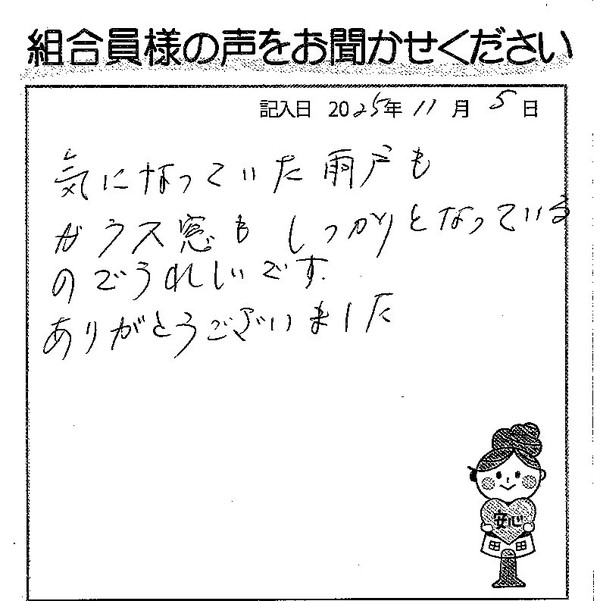 組合員様の声をお聞かせください
記入日 2025年 11月 5日
気になっていた雨戸も
ガラス窓も しっかりとなっている
のでうれしいです.
ありがとうございました
安心